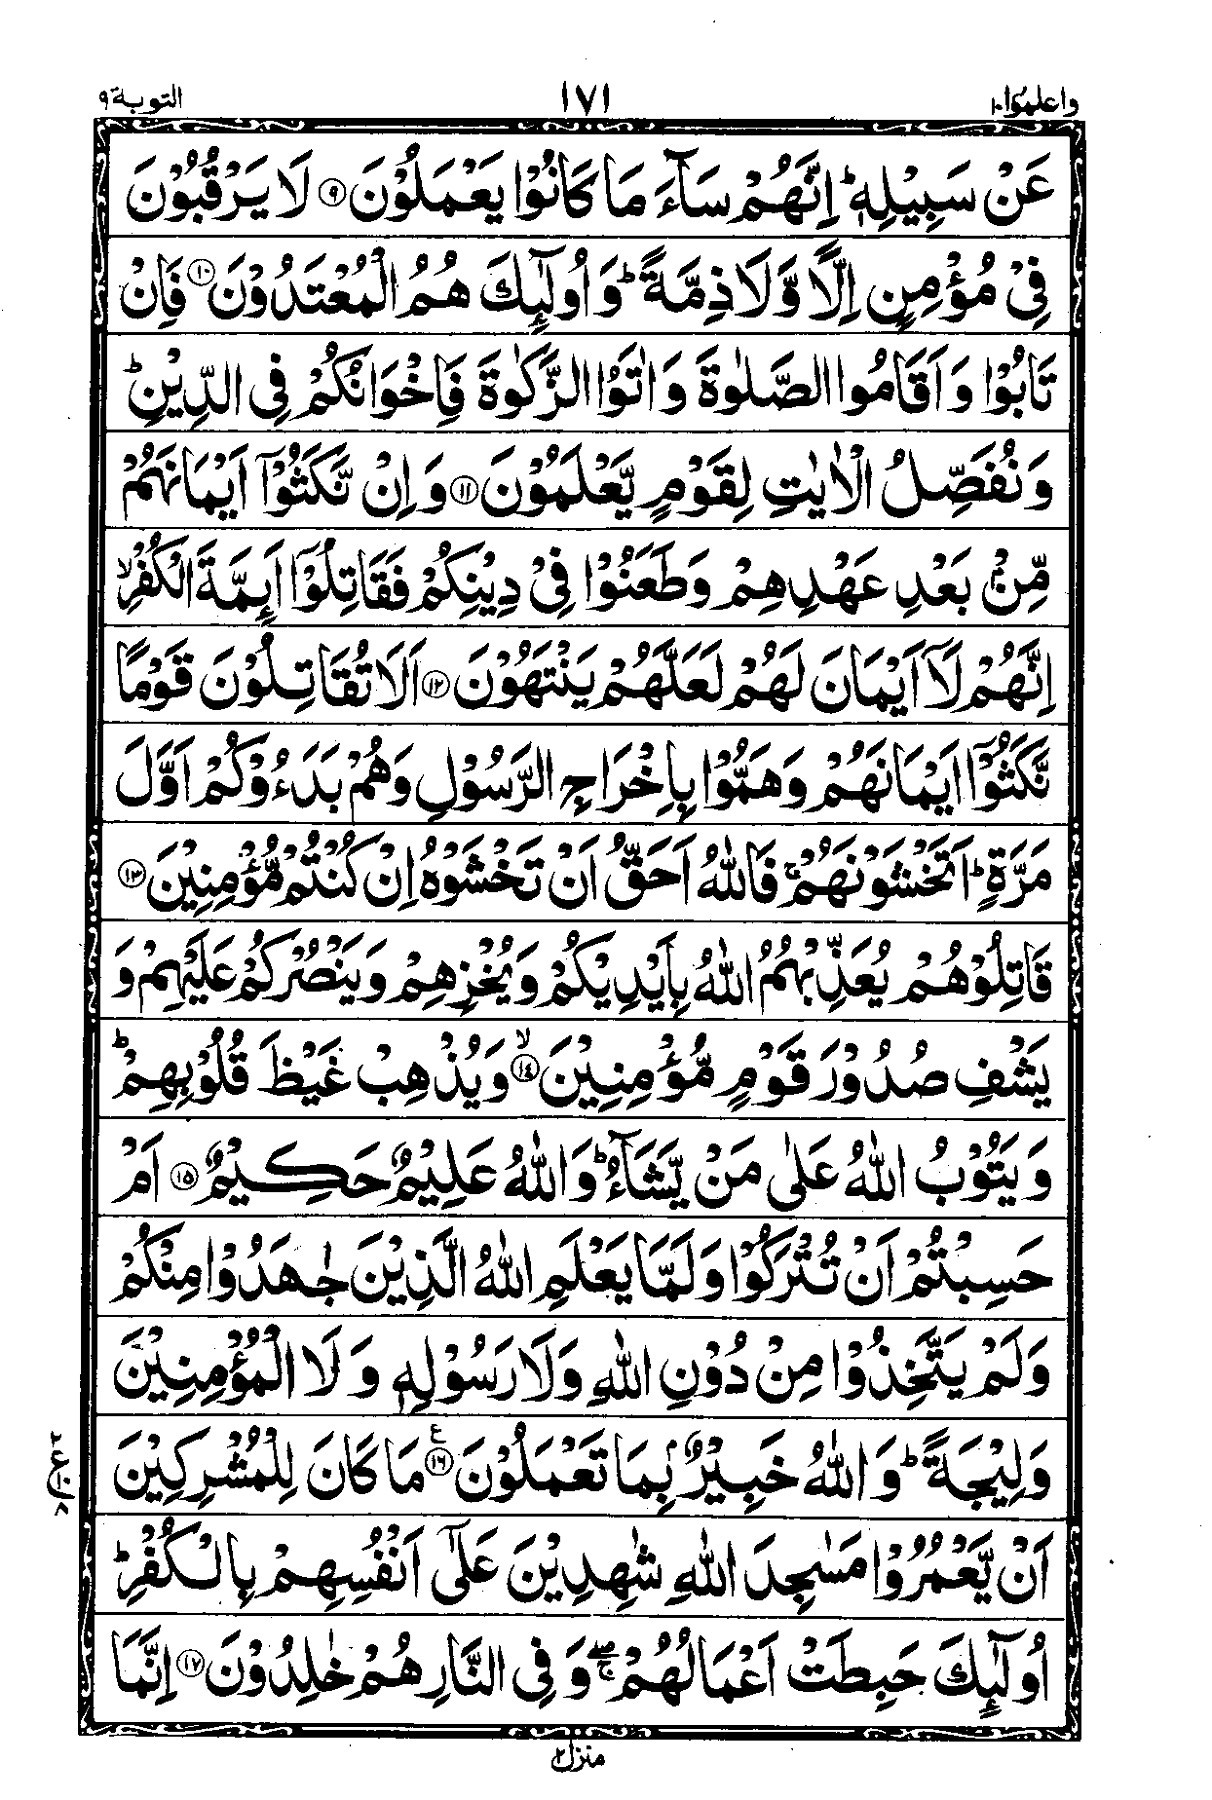 واعلموا ١٠ ١٧١ التوبة ٩
عَنْ سَبِيْلِهٖ ؕ اِنَّهُمْ سَآءَ مَا كَانُوْا يَعْمَلُوْنَ ۝٩ لَا يَرْقُبُوْنَ
فِيْ مُؤْمِنٍ اِلًّا وَّلَا ذِمَّةً ؕ وَ اُولٰٓئِكَ هُمُ الْمُعْتَدُوْنَ ۝١٠ فَاِنْ
تَابُوْا وَ اَقَامُوا الصَّلٰوةَ وَ اٰتَوُا الزَّكٰوةَ فَاِخْوَانُكُمْ فِي الدِّيْنِ ؕ
وَ نُفَصِّلُ الْاٰيٰتِ لِقَوْمٍ يَّعْلَمُوْنَ ۝١١ وَ اِنْ نَّكَثُوْۤا اَيْمَانَهُمْ
مِّنْۢ بَعْدِ عَهْدِهِمْ وَ طَعَنُوْا فِيْ دِيْنِكُمْ فَقَاتِلُوْۤا اَئِمَّةَ الْكُفْرِ ۙ
اِنَّهُمْ لَاۤ اَيْمَانَ لَهُمْ لَعَلَّهُمْ يَنْتَهُوْنَ ۝١٢ اَلَا تُقَاتِلُوْنَ قَوْمًا
نَّكَثُوْۤا اَيْمَانَهُمْ وَ هَمُّوْا بِاِخْرَاجِ الرَّسُوْلِ وَ هُمْ بَدَءُوْكُمْ اَوَّلَ
مَرَّةٍ ؕ اَتَخْشَوْنَهُمْ ۚ فَاللّٰهُ اَحَقُّ اَنْ تَخْشَوْهُ اِنْ كُنْتُمْ مُّؤْمِنِيْنَ ۝١٣
قَاتِلُوْهُمْ يُعَذِّبْهُمُ اللّٰهُ بِاَيْدِيْكُمْ وَ يُخْزِهِمْ وَ يَنْصُرْكُمْ عَلَيْهِمْ وَ
يَشْفِ صُدُوْرَ قَوْمٍ مُّؤْمِنِيْنَ ۙ۝١٤ وَ يُذْهِبْ غَيْظَ قُلُوْبِهِمْ ؕ
وَ يَتُوْبُ اللّٰهُ عَلٰى مَنْ يَّشَآءُ ؕ وَ اللّٰهُ عَلِيْمٌ حَكِيْمٌ ۝١٥ اَمْ
حَسِبْتُمْ اَنْ تُتْرَكُوْا وَ لَمَّا يَعْلَمِ اللّٰهُ الَّذِيْنَ جٰهَدُوْا مِنْكُمْ
وَ لَمْ يَتَّخِذُوْا مِنْ دُوْنِ اللّٰهِ وَ لَا رَسُوْلِهٖ وَ لَا الْمُؤْمِنِيْنَ
وَلِيْجَةً ؕ وَ اللّٰهُ خَبِيْرٌۢ بِمَا تَعْمَلُوْنَ ۝١٦ ع مَا كَانَ لِلْمُشْرِكِيْنَ
اَنْ يَّعْمُرُوْا مَسٰجِدَ اللّٰهِ شٰهِدِيْنَ عَلٰۤى اَنْفُسِهِمْ بِالْكُفْرِ ؕ
اُولٰٓئِكَ حَبِطَتْ اَعْمَالُهُمْ ۖۚ وَ فِي النَّارِ هُمْ خٰلِدُوْنَ ۝١٧ اِنَّمَا
منزل ٢